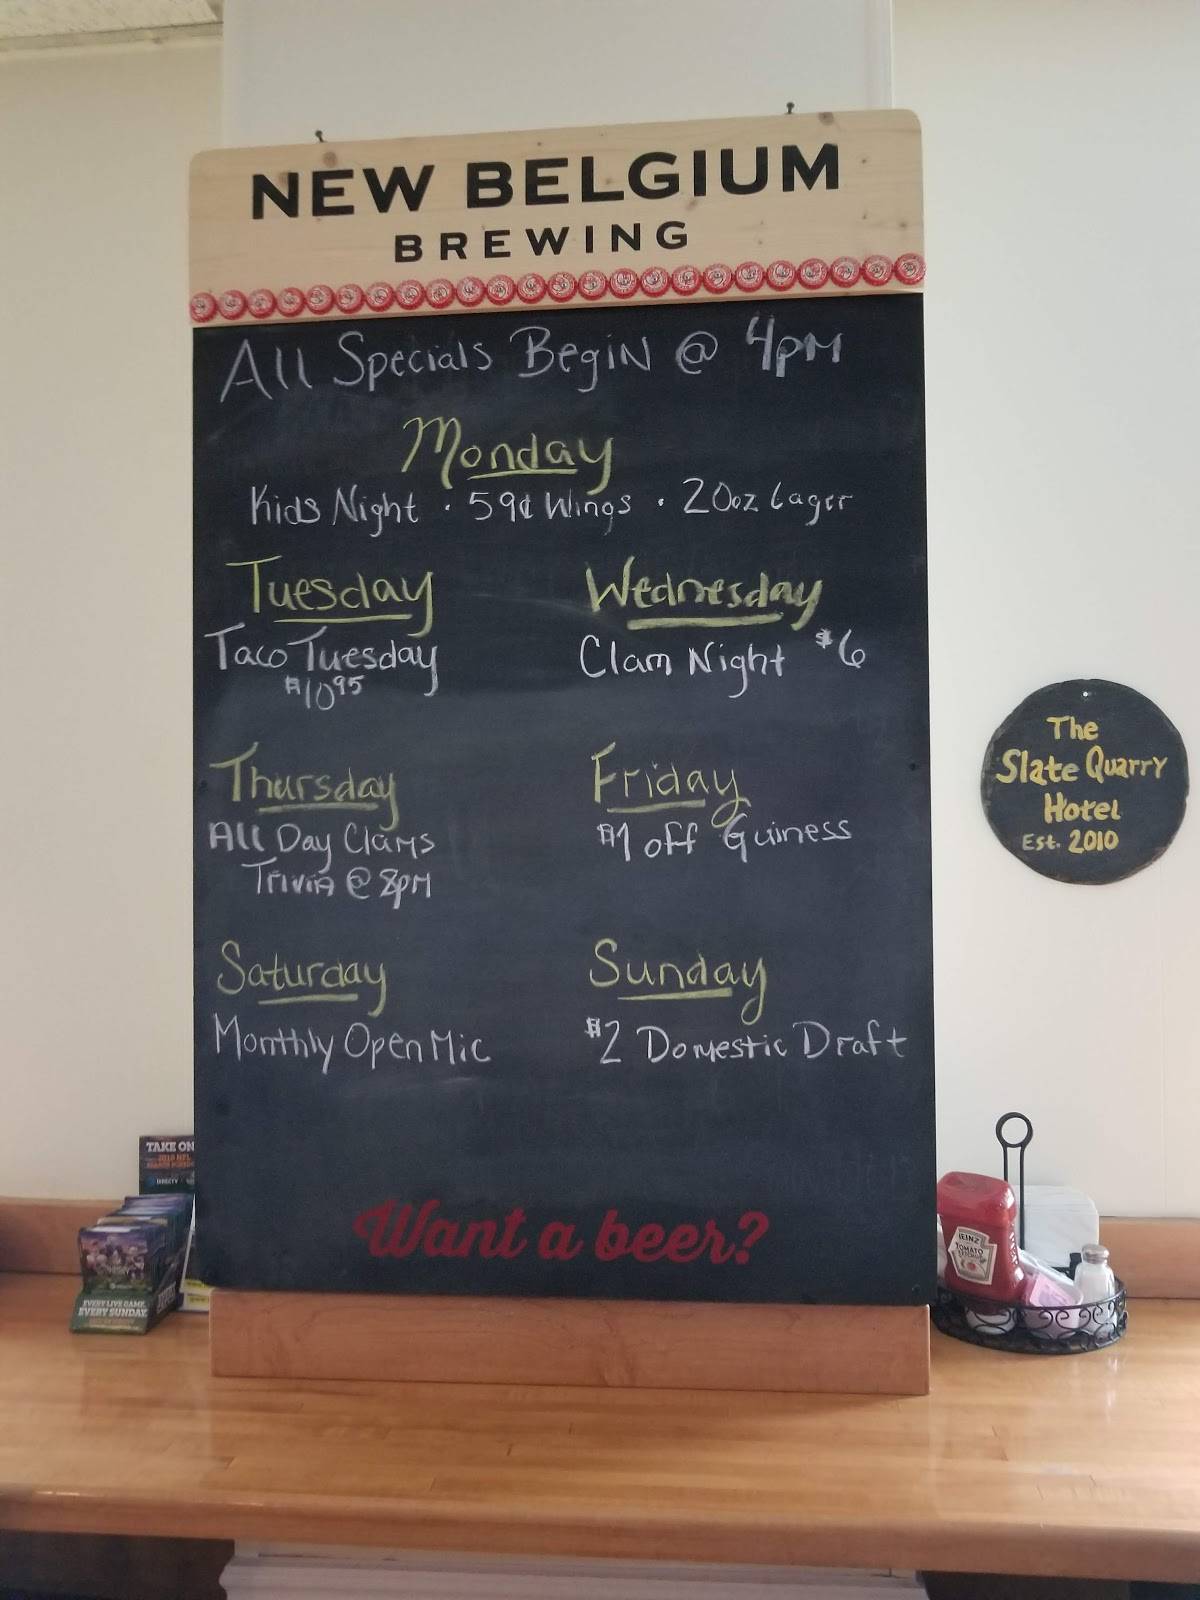 NEW BELGIUM
BREWING
All Specials Begin @ 4pm
Monday
Kids Night · 59¢ Wings · 20oz Lager
Tuesday
Taco Tuesday
$10.95
Wednesday
Clam Night $6
Thursday
All Day Clams
Trivia @ 8pm
Friday
$1 off Guiness
Saturday
Monthly Open Mic
Sunday
$2 Domestic Draft
Want a beer?
The
Slate Quarry
Hotel
Est. 2010
TAKE ON
DIRECTV
EVERY LIVE GAME.
EVERY SUNDAY.
HEINZ
TOMATO
KETCHUP